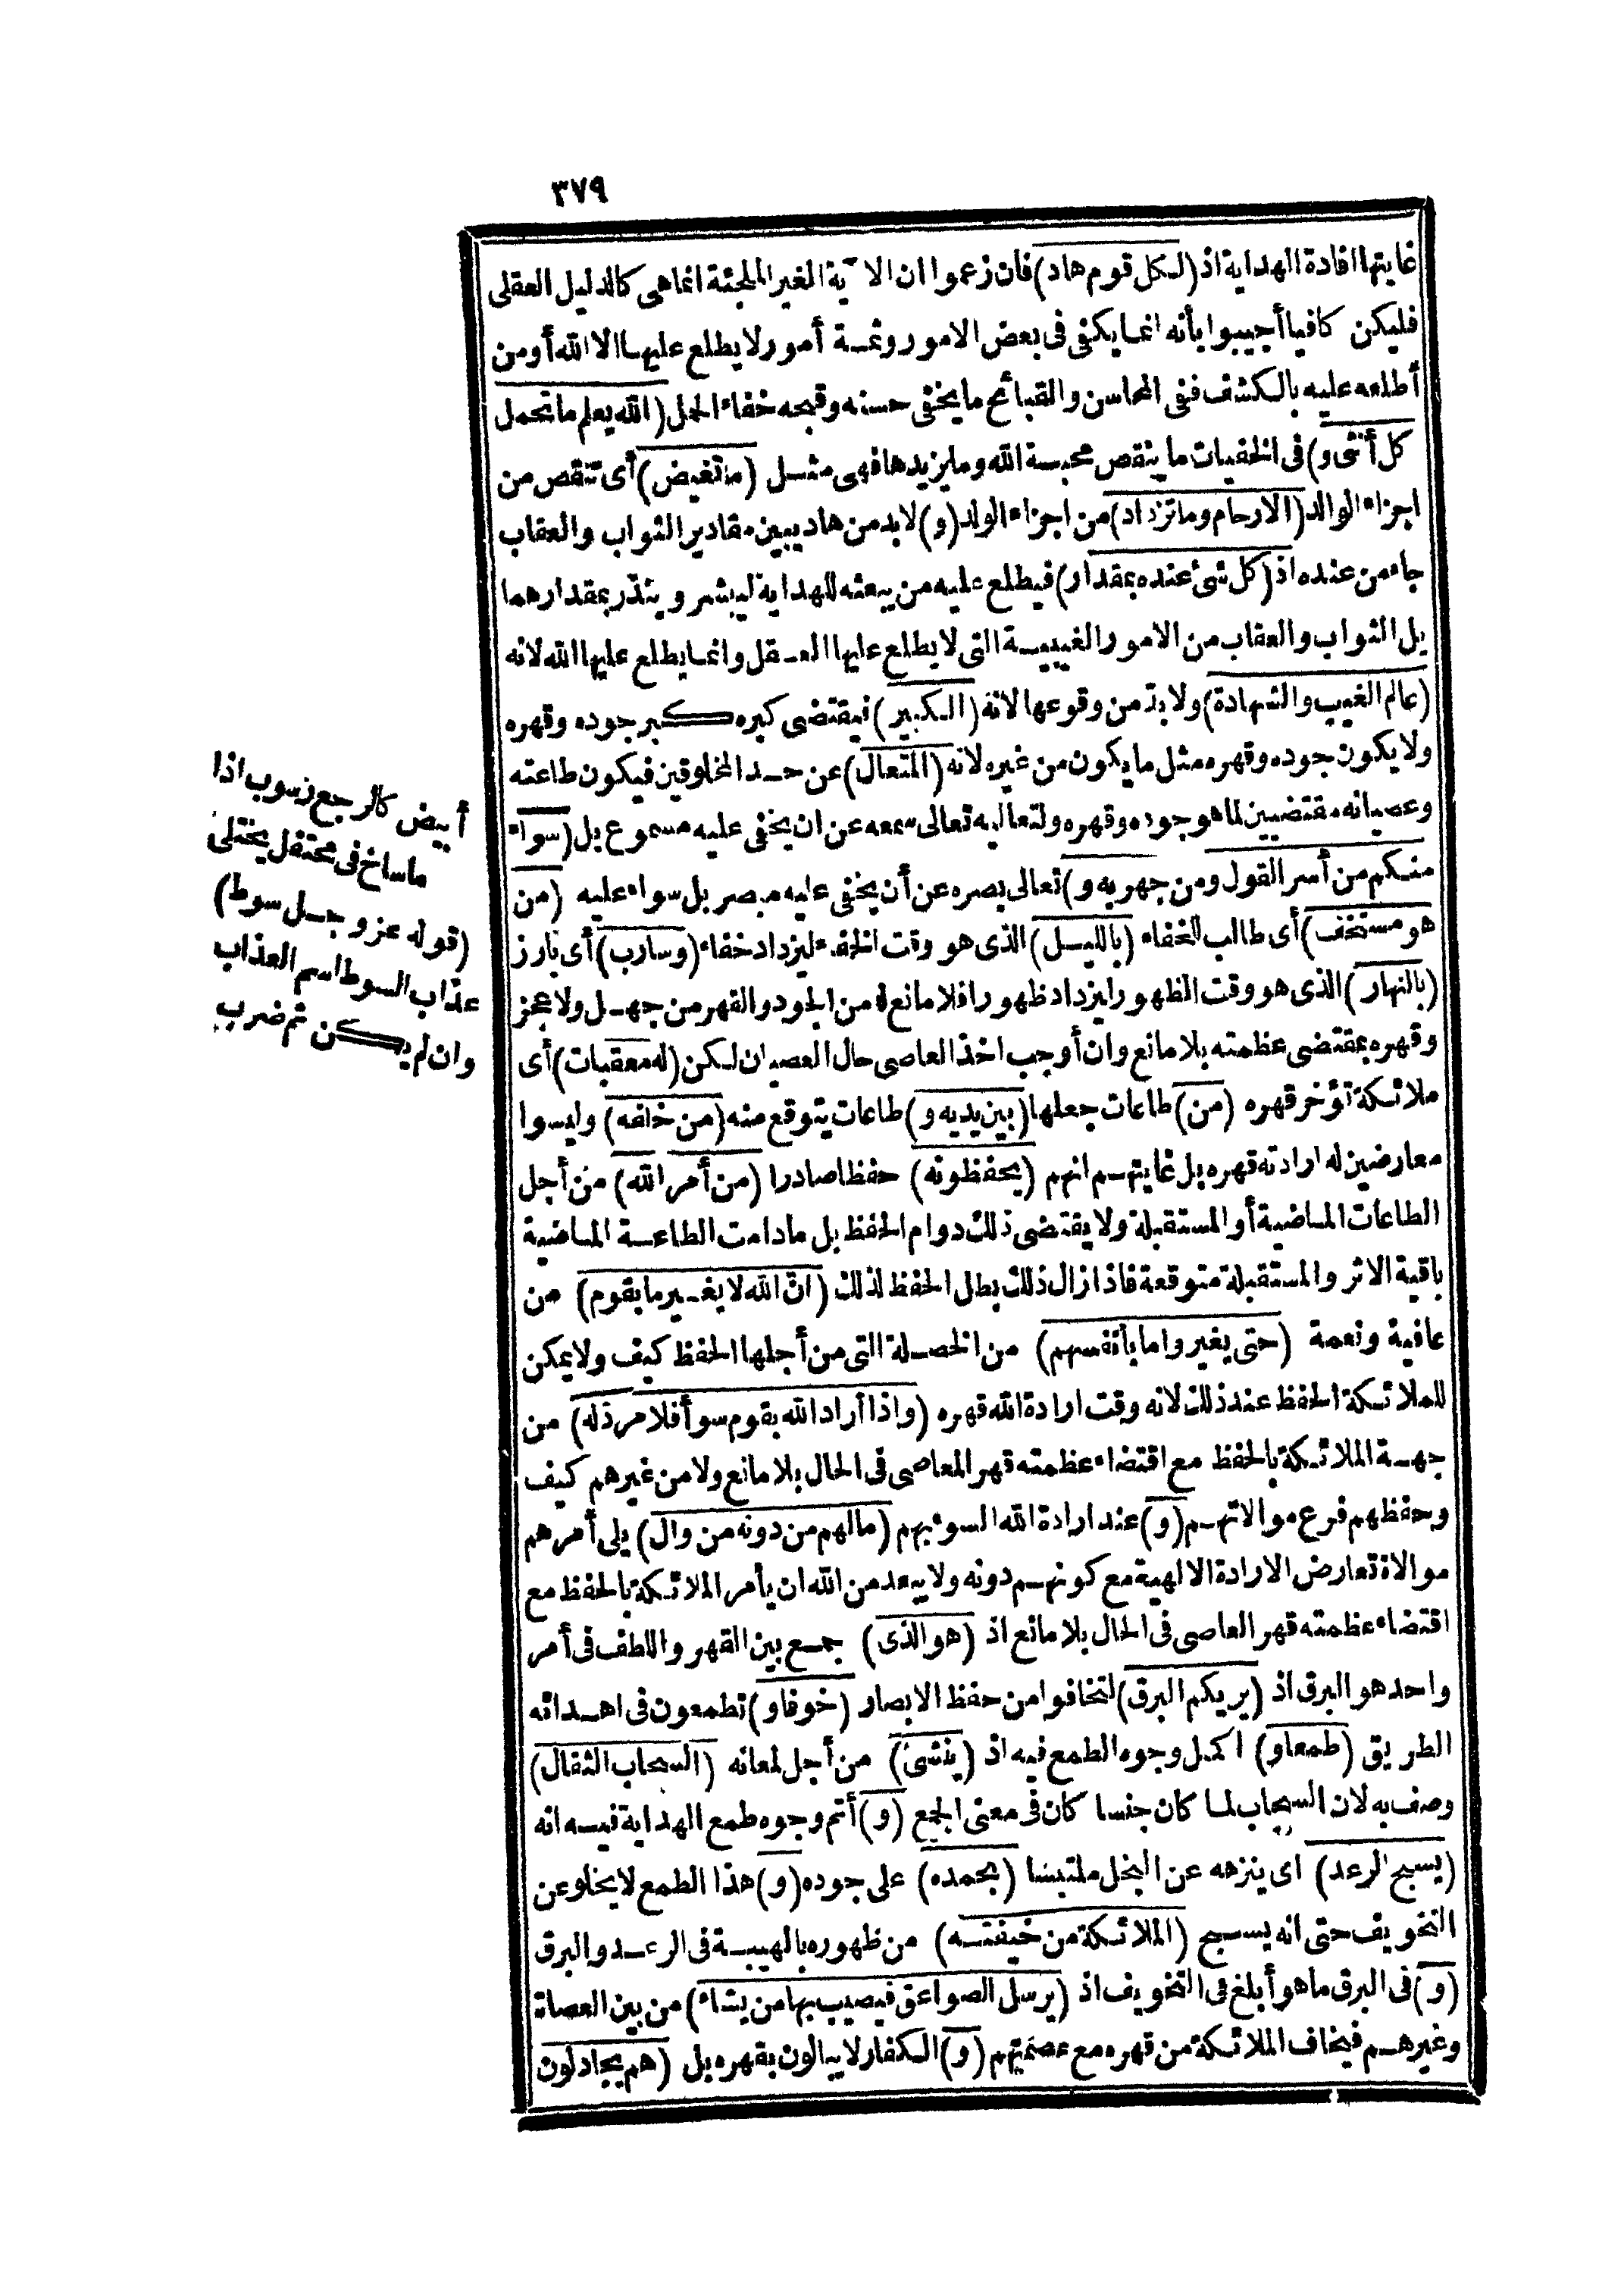 ٣٧٩
غايتها افادة الهداية اذ (لكل قوم هاد) فان زعموا ان الآية الغير الملجئة انما هى كالدليل العقلى
فليكن كافيا أجيبوا بأنه انما يكفى فى بعض الامور وثمة أمور لا يطلع عليها الا الله أو من
أطلعه عليه بالكشف ففى المحاسن والقبائح ما يخفى حسنه وقبحه خفاء الحمل (الله يعلم ما تحمل
كل أنثى و) فى الخفيات ما ينقص محبسة الله وما يزيدها فهى مثل (ما تغيض) أى تنقص من
اجزاء الوالد (الارحام وما تزداد) من اجزاء الولد (و) لابد من هاد يبين مقادير الثواب والعقاب
جاء من عنده اذ (كل شئ عنده بمقدار) فيطلع عليه من يبعثه للهداية ليبشر وينذر بمقدارهما
بل الثواب والعقاب من الامور الغيبية التى لا يطلع عليها العقل وانما يطلع عليها الله لانه
(عالم الغيب والشهادة) ولا بد من وقوعها لانه (الكبير) فيقتضى كبره كبر جوده وقهره
ولا يكون جوده وقهره مثل ما يكون من غيره لانه (المتعال) عن حد المخلوقين فيكون طاعته
وعصيانه مقتضيين لما هو جوده وقهره ولتعاليه تعالى سمعه عن ان يخفى عليه مسموع بل (سواء
منكم من أسر القول ومن جهر به و) تعالى بصره عن أن يخفى عليه مبصر بل سواء عليه (من
هو مستخف) أى طالب للخفاء (بالليل) الذى هو وقت الخفاء ليزداد خفاء (وسارب) أى بارز
(بالنهار) الذى هو وقت الظهور ليزداد ظهورا فلا مانع له من الجود والقهر من جهل ولا عجز
وقهره بمقتضى عظمته بلا مانع وان أوجب اخذ العاصى حال العصيان لكن (له معقبات) أى
ملائكة تؤخر قهره (من) طاعات جعلها (بين يديه و) طاعات يتوقع منه (من خلفه) وليسوا
معارضين له ارادته قهره بل غايتهم انهم (يحفظونه) حفظا صادرا (من أمر الله) من أجل
الطاعات الماضية أو المستقبلة ولا يقتضى ذلك دوام الحفظ بل ما دامت الطاعة الماضية
باقية الاثر والمستقبلة متوقعة فاذا زال ذلك بطل الحفظ لذلك (ان الله لا يغير ما بقوم) من
عافية ونعمة (حتى يغيروا ما بأنفسهم) من الخصلة التى من أجلها الحفظ كيف ولا يمكن
للملائكة الحفظ عند ذلك لانه وقت ارادة الله قهره (واذا أراد الله بقوم سوأ فلا مرد له) من
جهة الملائكة بالحفظ مع اقتضاء عظمته قهر المعاصى فى الحال بلا مانع ولا من غيرهم كيف
وحفظهم فرع موالاتهم (و) عند ارادة الله السوء بهم (ما لهم من دونه من وال) يلى أمرهم
موالاة تعارض الارادة الالهية مع كونهم دونه ولا يبعد من الله ان يأمر الملائكة بالحفظ مع
اقتضاء عظمته قهر العاصى فى الحال بلا مانع اذ (هو الذى) جمع بين القهر واللطف فى أمر
واحد هو البرق اذ (يريكم البرق) لتخافوا من حفظ الابصار (خوفا و) تطمعون فى اهدائه
الطريق (طمعا و) اكمل وجوه الطمع فيه اذ (ينشئ) من أجل لمعانه (السحاب الثقال)
وصف به لان السحاب لما كان جنسا كان فى معنى الجمع (و) أتم وجوه طمع الهداية فيه انه
(يسبح الرعد) اى ينزهه عن البخل ملتبسا (بحمده) على جوده (و) هذا الطمع لا يخلو عن
التخويف حتى انه يسبح (الملائكة من خيفته) من ظهوره بالهيبة فى الرعد والبرق
(و) فى البرق ما هو أبلغ فى التخويف اذ (يرسل الصواعق فيصيب بها من يشاء) من بين العصاة
وغيرهم فيخاف الملائكة من قهره مع عصمتهم (و) الكفار لا يبالون بقهره بل (هم يجادلون
أبيض كالرجع رسوب اذا
ما ساخ فى محتفل يختلى
(قوله عز وجل سوط)
عذاب السوط اسم العذاب
وان لم يكن ثم ضرب